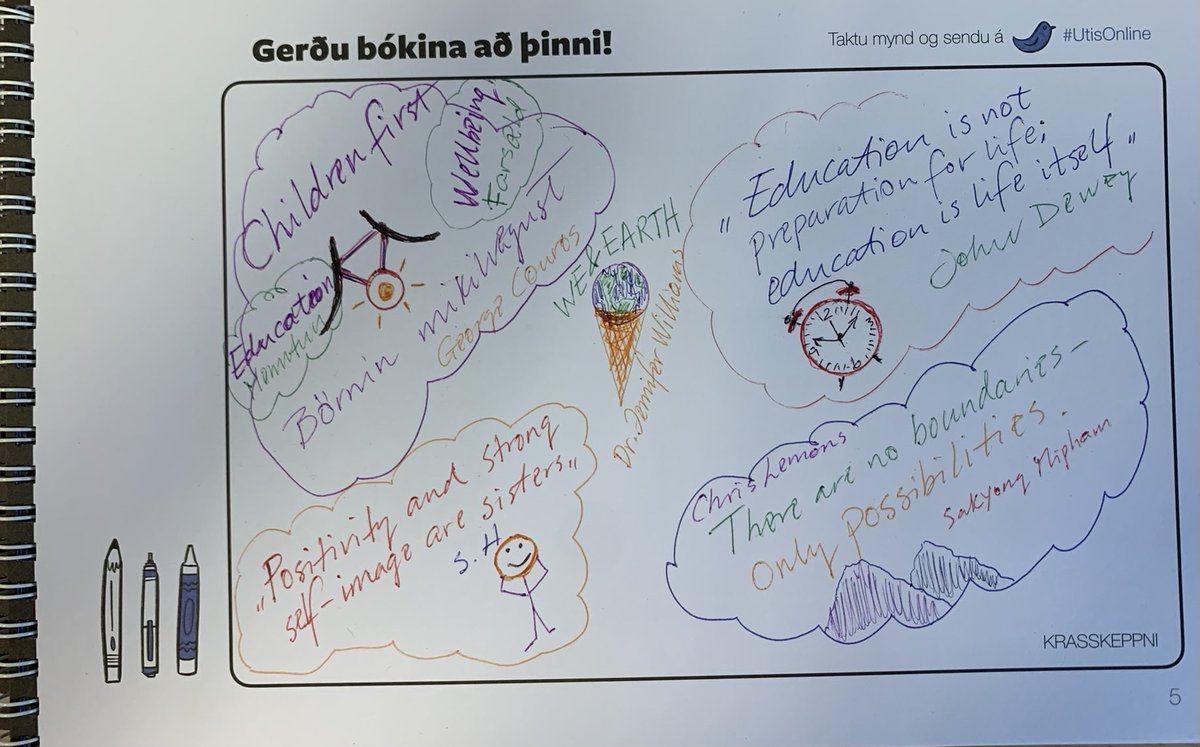 Gerðu bókina að þinni!
Taktu mynd og sendu á #UtisOnline
Children first
Wellbeing
Farsæld
Education
Menntun
Börnin mikilvægust
George Couros
WE & EARTH
Dr. Jennifer Williams
„Education is not
preparation for life;
education is life itself„
John Dewey
12
„Positivity and strong
self-image are sisters„
S.H
Chris Lemons
There are no boundaries-
only possibilities.
Sakyong Mipham
KRASSKEPPNI
5